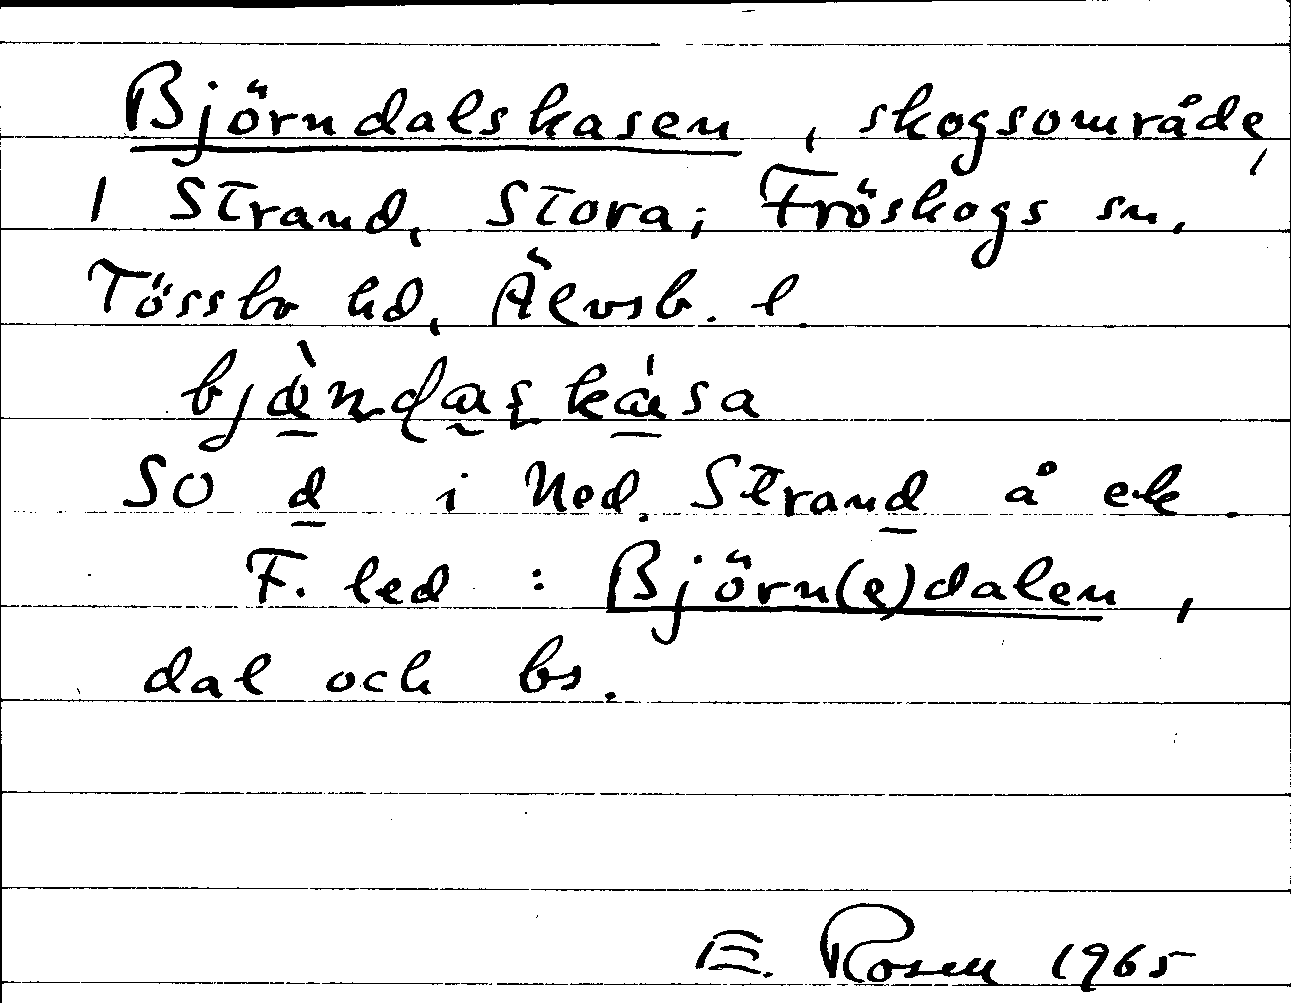 Björndalskasen, skogsområde,
1 Strand, Stora; Fröskogs sn,
Tössbo hd, Älvsb. l.
SO d i Ned. Strand å ek.
F. led : Björn(e)dalen,
dal och bs.
E. Rosen 1965